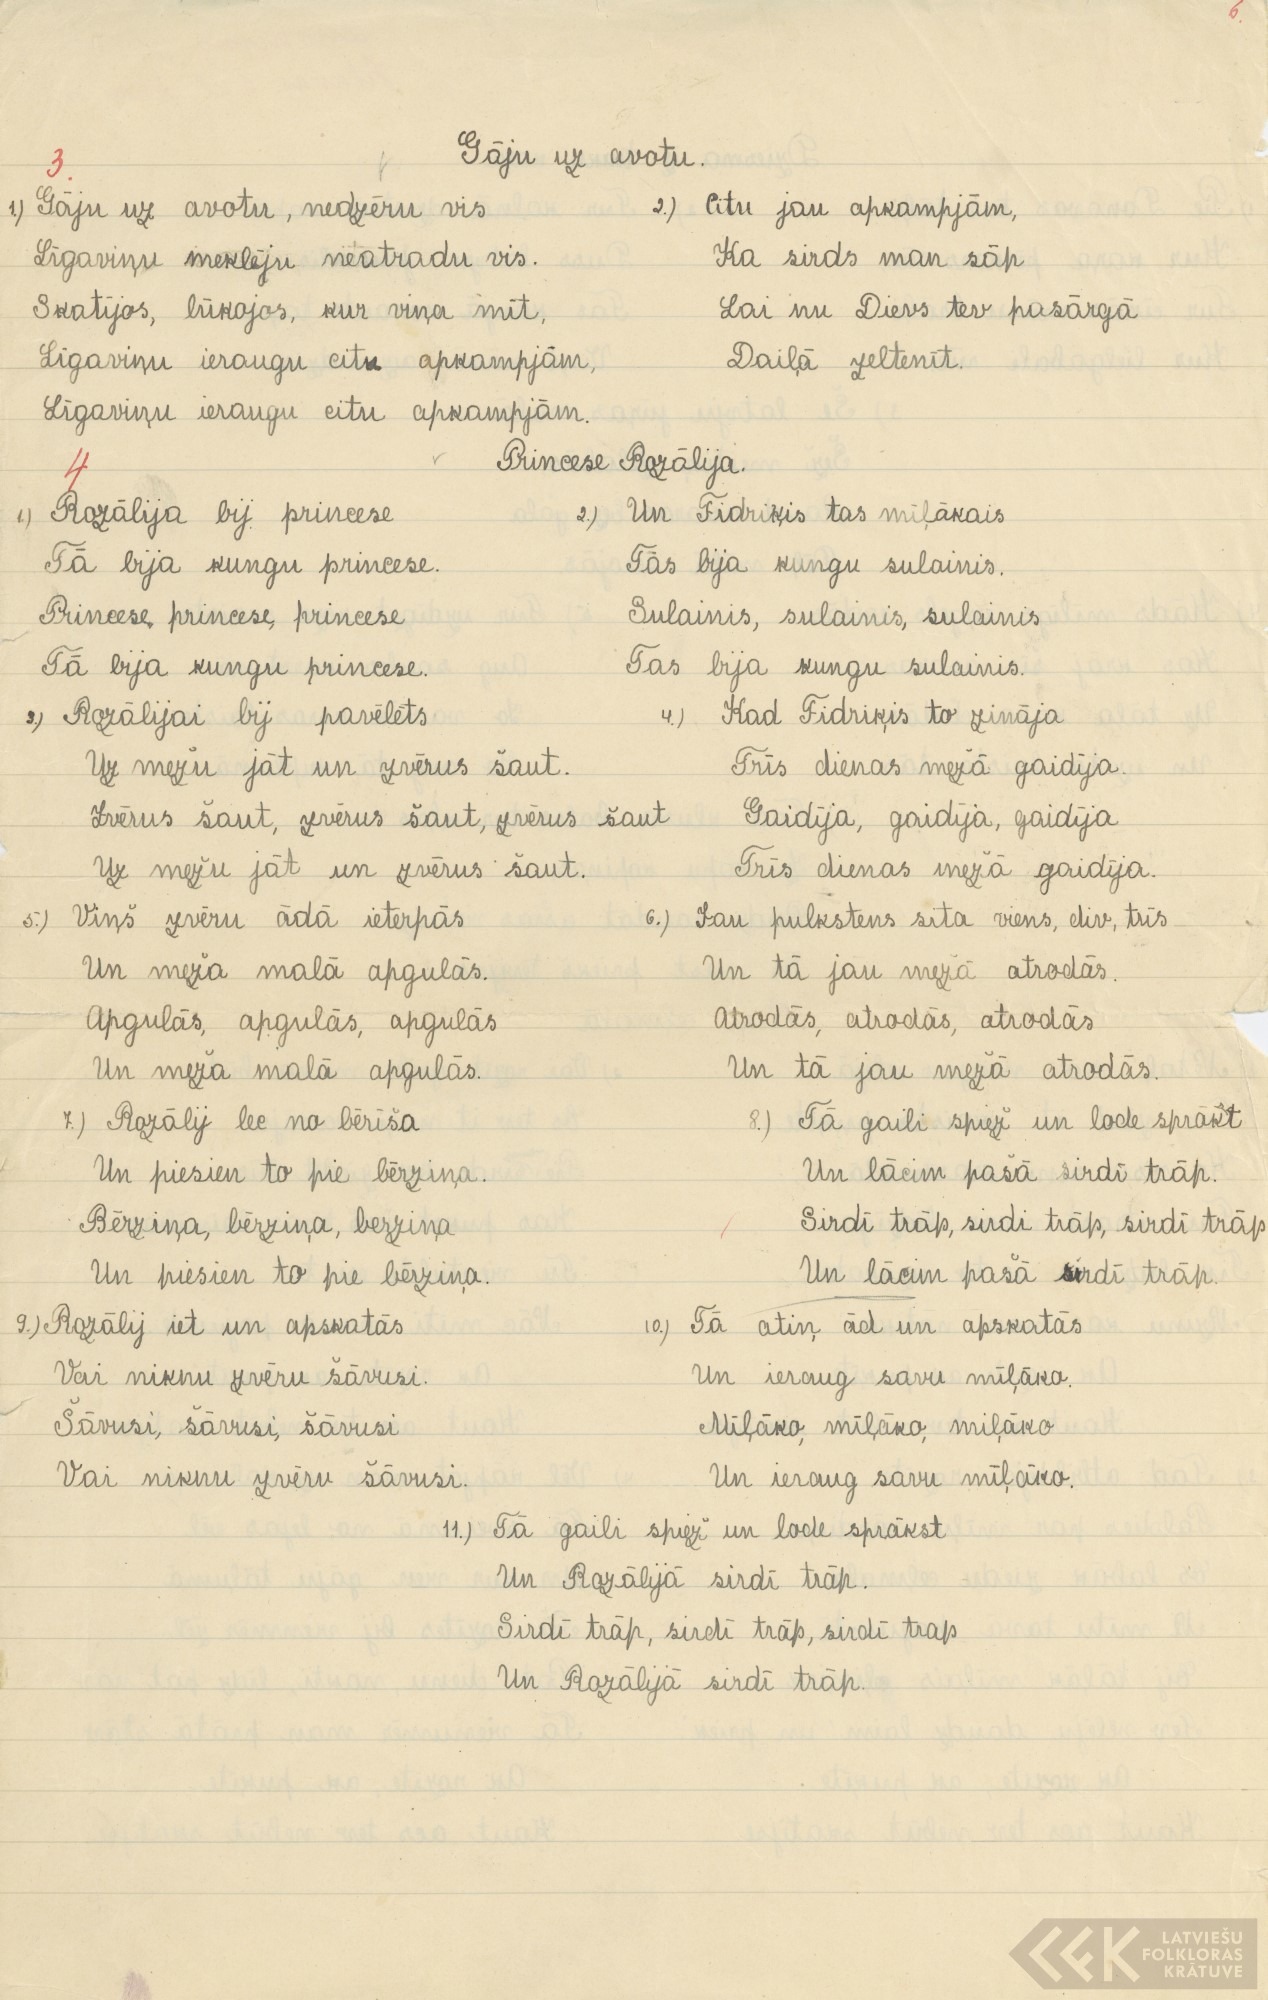 6.
3.
Gāju uz avotu.
1) Gāju uz avotu, nedzēru vis
Līgaviņu meklēju neatradu vis.
Skatījos, lūkojos, kur viņa mīt,
Līgaviņu ieraugu citu apkampjām,
Līgaviņu ieraugu citu apkampjām.
2.) Citu jau apkampjām,
Ka sirds man sāp
Lai nu Dievs tev pasārgā
Daiļā zeltenīt.
4
Princese Rozālija.
1.) Rozālija bij princese
Tā bija kungu princese.
Princese, princese, princese
Tā bija kungu princese.
2.) Un Fidriķis tas mīļākais
Tās bija kungu sulainis.
Sulainis, sulainis, sulainis
Tas bija kungu sulainis.
3.) Rozālijai bij pavēlēts
Uz mežu jāt un zvērus šaut.
Zvērus šaut, zvērus šaut, zvērus šaut
Uz mežu jāt un zvērus šaut.
4.) Kad Fidriķis to zināja
Trīs dienas mežā gaidīja.
Gaidīja, gaidīja, gaidīja
Trīs dienas mežā gaidīja.
5.) Viņš zvēru ādā ieterpās
Un meža malā apgulās.
Apgulās, apgulās, apgulās
Un meža malā apgulās.
6.) Jau pulkstens sita viens, div, trīs
Un tā jau mežā atrodās.
Atrodās, atrodās, atrodās
Un tā jau mežā atrodās.
7.) Rozālij lec no bērīša
Un piesien to pie bērziņa.
Bērziņa, bērziņa, berziņa
Un piesien to pie bērziņa.
8.) Tā gaili spiež un lode sprākst
Un lācim pašā sirdī trāp.
Sirdī trāp, sirdi trāp, sirdī trāp
Un lācim pašā sirdī trāp.
9.) Rozālij iet un apskatās
Vai niknu zvēru šāvusi.
Šāvusi, šāvusi, šāvusi
Vai niknu zvēru šāvusi.
10.) Tā atiņ ād un apskatās
Un ieraug savu mīļāko.
Mīļāko, mīļāko, miļāko
Un ieraug savu mīļāko.
11.) Tā gaili spiež un lode sprākst
Un Rozālijā sirdī trāp.
Sirdī trāp, sirdī trāp, sirdī trap
Un Rozālijā sirdī trāp.
LATVIEŠU
FOLKLORAS
KRĀTUVE